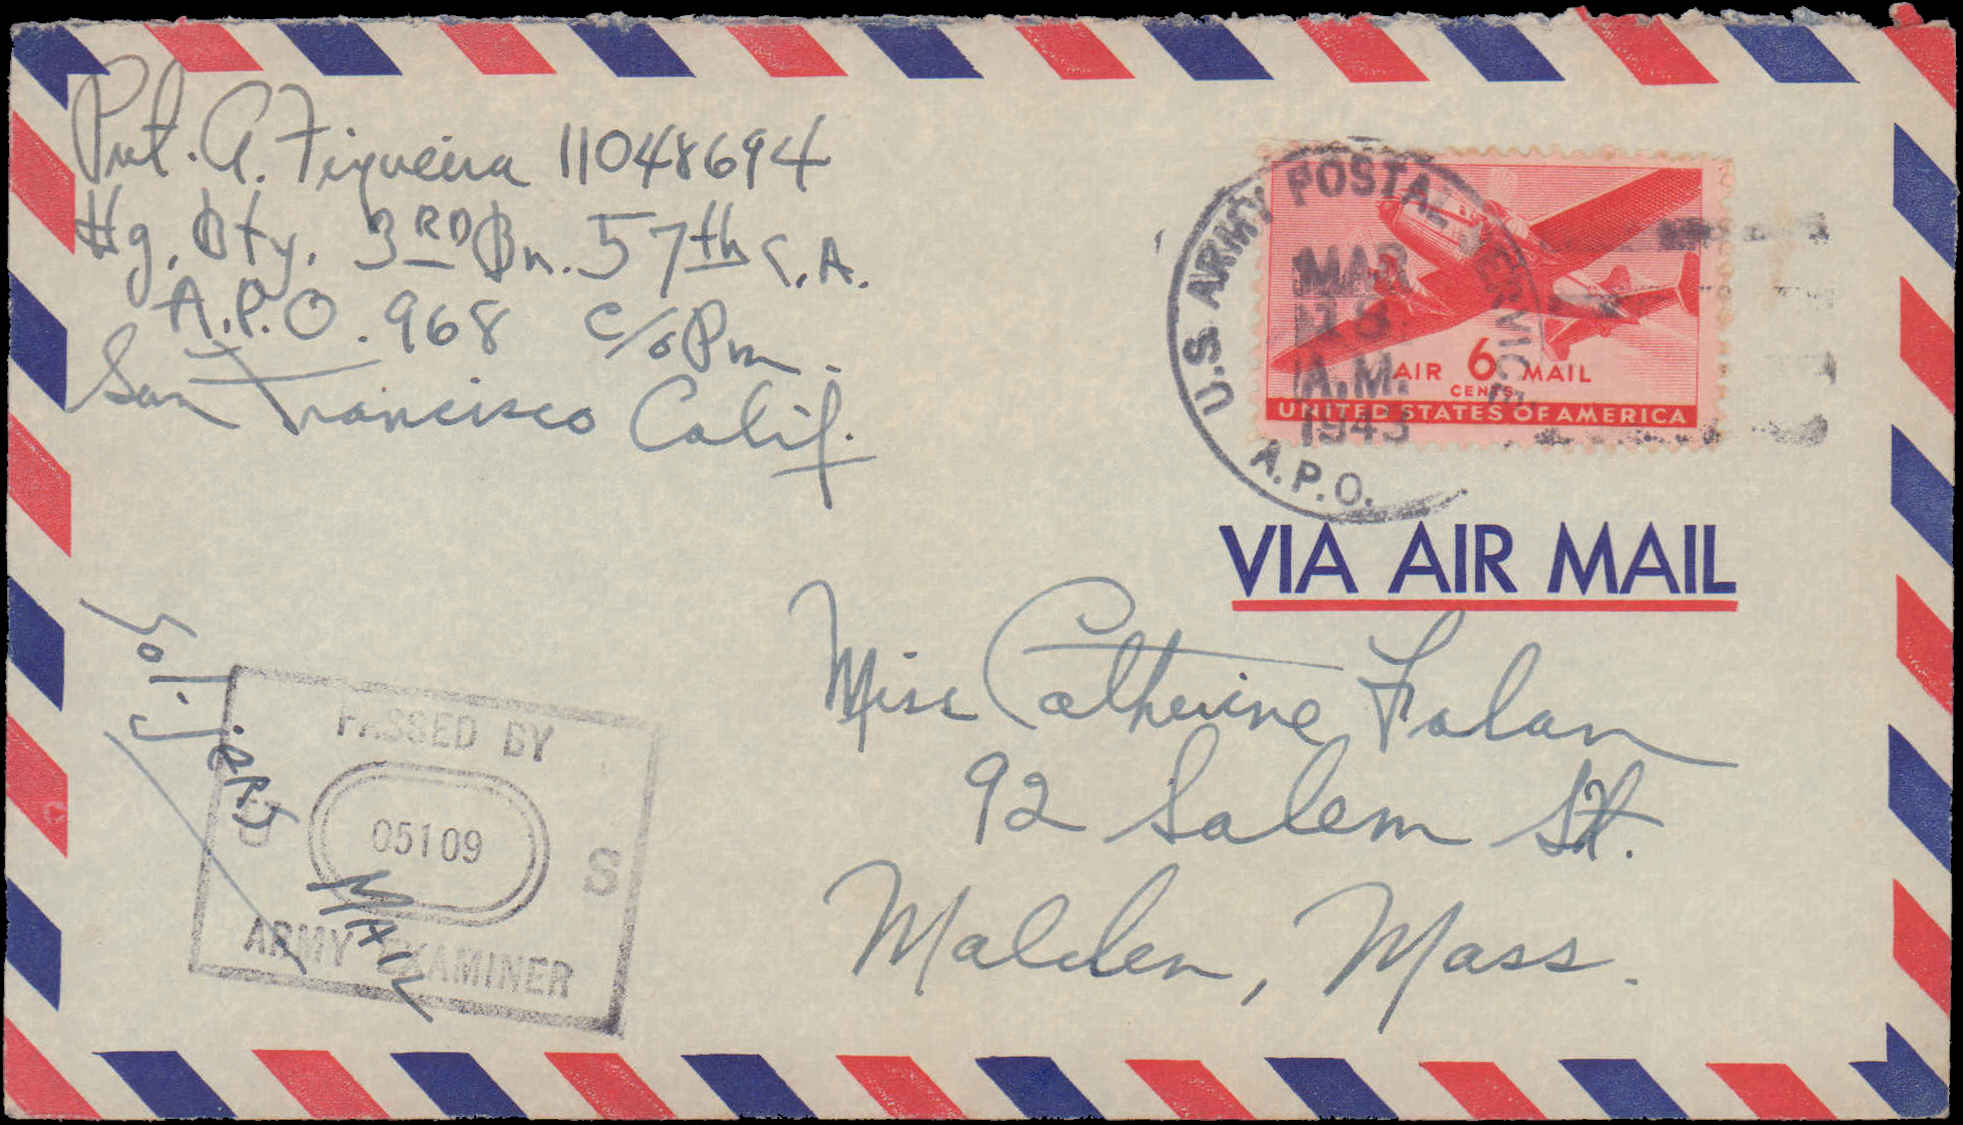 Pvt. A. Figueira 11048694
Hq. Bty. 3RD Bn. 57th C.A.
A.P.O. 968 c/o Pm.
San Francisco Calif.
U.S. ARMY POSTAL SERVICE
MAR
18
A.M.
1943
A.P.O.
AIR 6 MAIL
CENTS
UNITED STATES OF AMERICA
VIA AIR MAIL
Miss Catherine Folan
92 Salem St.
Malden, Mass.
PASSED BY
U 05109 S
ARMY EXAMINER
MAIL